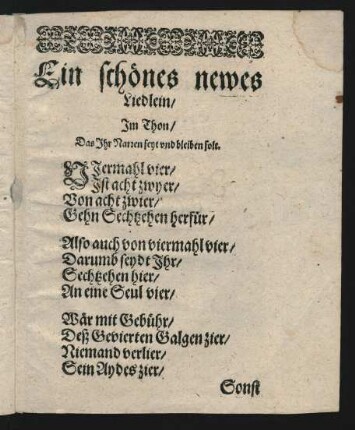 Ein schönes newes
Liedlein/
Im Thon/
Das Ihr Narren seyt vnd bleiben solt.
VIermahl vier/
Ist acht zwyer/
Von acht zwier/
Gehn Sechtzehen herfür/
Also auch von viermahl vier/
Darumb seydt Ihr/
Sechtzehen hier/
An eine Seul vier/
Wär mit Gebühr/
Deß Gevierten Galgen zier/
Niemand verlier/
Sein Aydes zier/
Sonst